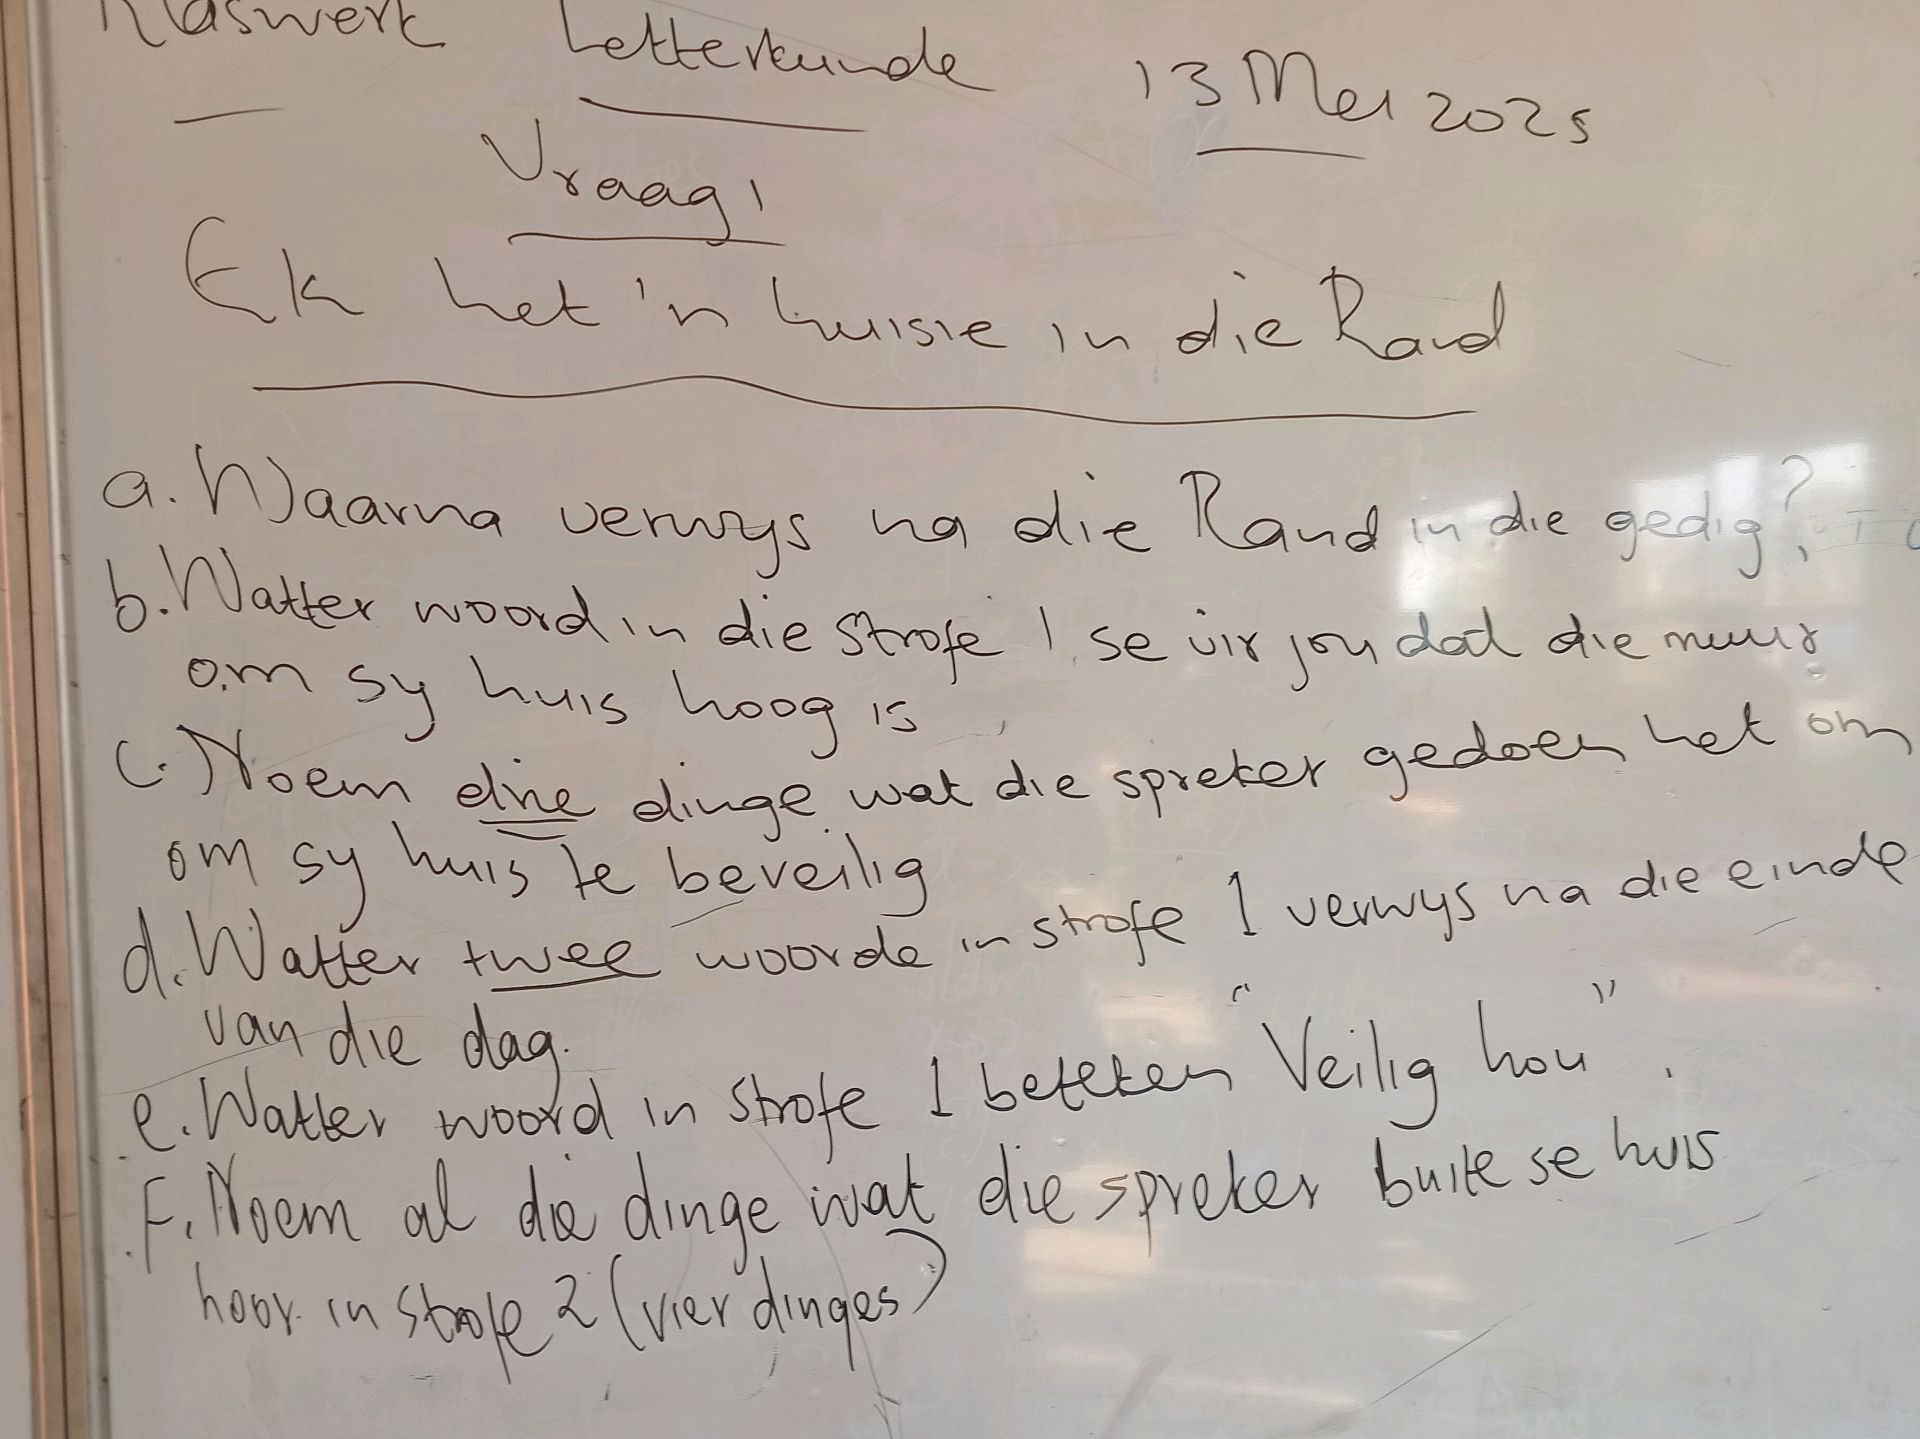 Klaswerk Letterkunde 13 Mei 2025
Vraag 1
Ek het 'n huisie in die Rand
a. Waarna verwys na die Rand in die gedig?
b. Watter woord in die strofe 1 se vir jou dat die muur
om sy huis hoog is
c. Noem drie dinge wat die spreker gedoen het om
om sy huis te beveilig
d. Watter twee woorde in strofe 1 verwys na die einde
van die dag.
e. Watter woord in strofe 1 beteken "Veilig hou".
F. Noem al die dinge wat die spreker buite se huis
hoor in strofe 2 (vier dinges)